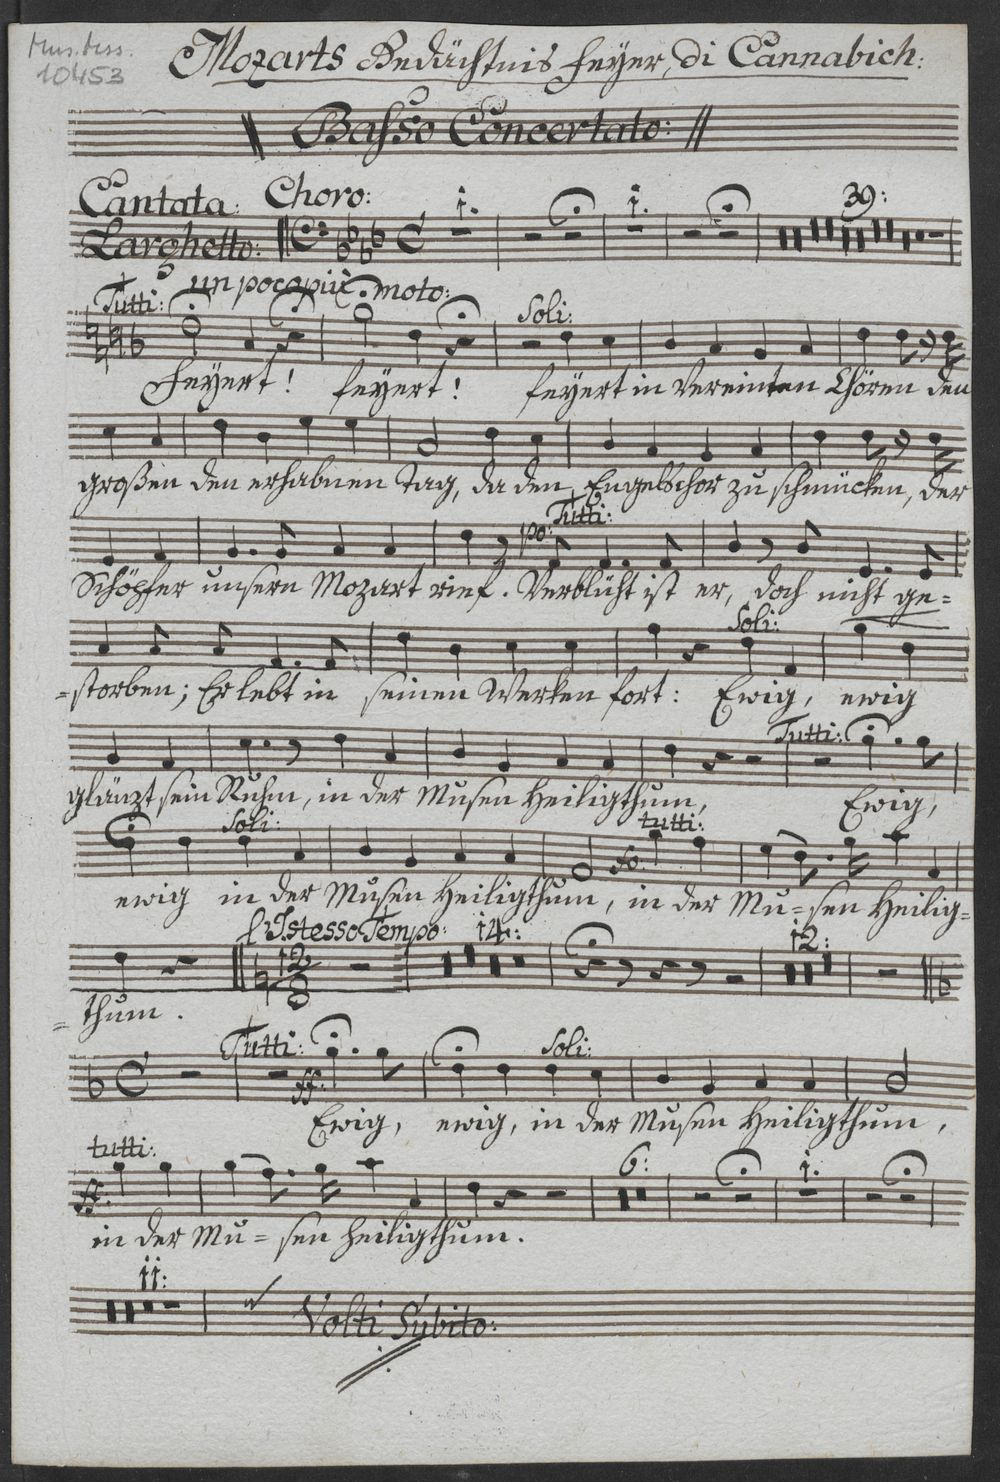 Mus. Mss.
10453
Mozarts Gedächtnis Feyer, di Cannabich:
Basso Concertato:
Cantata: Choro: 1. 1. 39:
Larghetto:
un poco più moto:
Tutti: Soli:
Feyert! feyert! feyert in Vereinten Chören den
großen den erhabnen Tag, da den Engelschor zu schmücken, der
po: Tutti:
Schöpfer unsern Mozart rief. Verblüht ist er, doch nicht ge=
Soli:
=storben; Er lebt in seinen Werken fort: Ewig, ewig
Tutti:
glänzt sein Ruhm, in der Musen Heiligthum, Ewig,
Soli: tutti:
fo:
ewig in der Musen Heiligthum, in der Mu=sen Heilig=
l'Istesso Tempo: 14: 12:
12
8
=thum.
Tutti: Soli:
ff:
Ewig, ewig, in der Musen Heiligthum,
tutti: 6: 1.
ff:
in der Mu=sen heiligthum.
11:
Volti Subito: